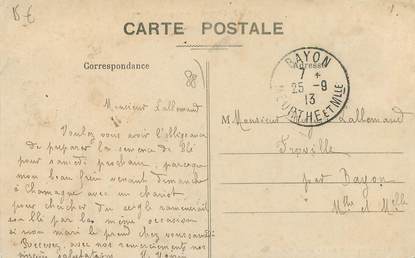 15 €
CARTE POSTALE
Correspondance
Adresse
BAYON
7 *
25 - 9
13
MEURTHE ET MLLE
Monsieur Lallemand
Voulez vous avoir l'obligeance
de préparer la semence de blé
pour samedi prochain, parceque
mon beau frère venant dimanche
à Chamagne avec un chariot
pour chercher du seigle ramènerait
le blé par la même occasion
si mon mari le prend chez vous samedi
Recevez, avec nos remerciements nos
salutations
M Monsieur Lallemand
Froville
par Bayon
Mthe et Mlle